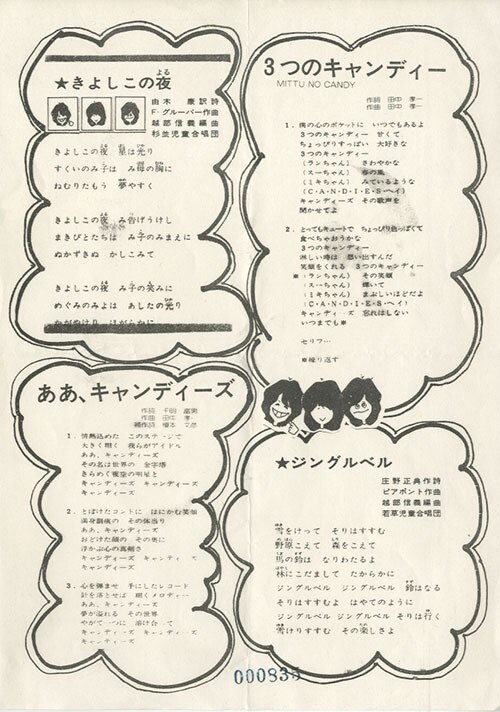 ★きよしこの夜
よる
由木 康訳詩
F・グルーバー作曲
越部信義編曲
杉並児童合唱団
きよしこの夜 星は光り
すくいのみ子は み母の胸に
ねむりたもう 夢やすく
きよしこの夜 み告げうけし
まきびとたちは み子のみまえに
ぬかずきぬ かしこみて
きよしこの夜 み子の笑みに
めぐみのみよは あしたの光り
かがやけり ほがらかに
3つのキャンディー
MITTU NO CANDY
作詞 田中 孝一
作曲 田中 孝一
1. 僕の心のポケットに いつでもあるよ
3つのキャンディー 甘くて
ちょっぴりすっぱい 大好きな
3つのキャンディー
(ランちゃん) さわやかな
(スーちゃん) 春の風
(ミキちゃん) みているような
(C・A・N・D・I・E・S・ヘイ)
キャンディーズ その歌声を
聞かせてよ
2. とってもキュートで ちょっぴり色っぽくて
食べちゃおうかな
3つのキャンディー
淋しい時は 思い出すんだ
笑顔をくれる 3つのキャンディー
※(ランちゃん) その笑顔
(スーちゃん) 輝いて
(ミキちゃん) まぶしいほどだよ
(C・A・N・D・I・E・S・ヘイ)
キャンディーズ 忘れはしない
いつまでも※
セリフ…
※繰り返す
ああ、キャンディーズ
作曲 田中 孝一
1. 情熱込めた このステージで
大きく咲く 我らがアイドル
ああ、キャンディーズ
その名は世界の 金字塔
きらめく夜空の明星と
キャンディーズ キャンディーズ
キャンディーズ
2. とぼけたコントに はにかむ笑顔
満身創痍の その体当り
ああ、キャンディーズ
おどけた顔の その奥に
浮かぶ心の真剣さ
キャンディーズ キャンディーズ
キャンディーズ
3. 心を弾ませ 手にしたレコード
針を落とせば 聞くメロディー
ああ、キャンディーズ
夢が溢れる その世界
やがて一つに 溶け合って
キャンディーズ キャンディーズ
キャンディーズ
★ジングルベル
庄野正典作詩
ピアポント作曲
越部信義編曲
若草児童合唱団
雪をけって そりはすすむ
野原こえて 森をこえて
馬の鈴は なりわたるよ
林にこだまして たからかに
ジングルベル ジングルベル 鈴はなる
そりはすすむよ はやてのように
ジングルベル ジングルベル そりは行く
雪けりすすむ その楽しさよ
000835